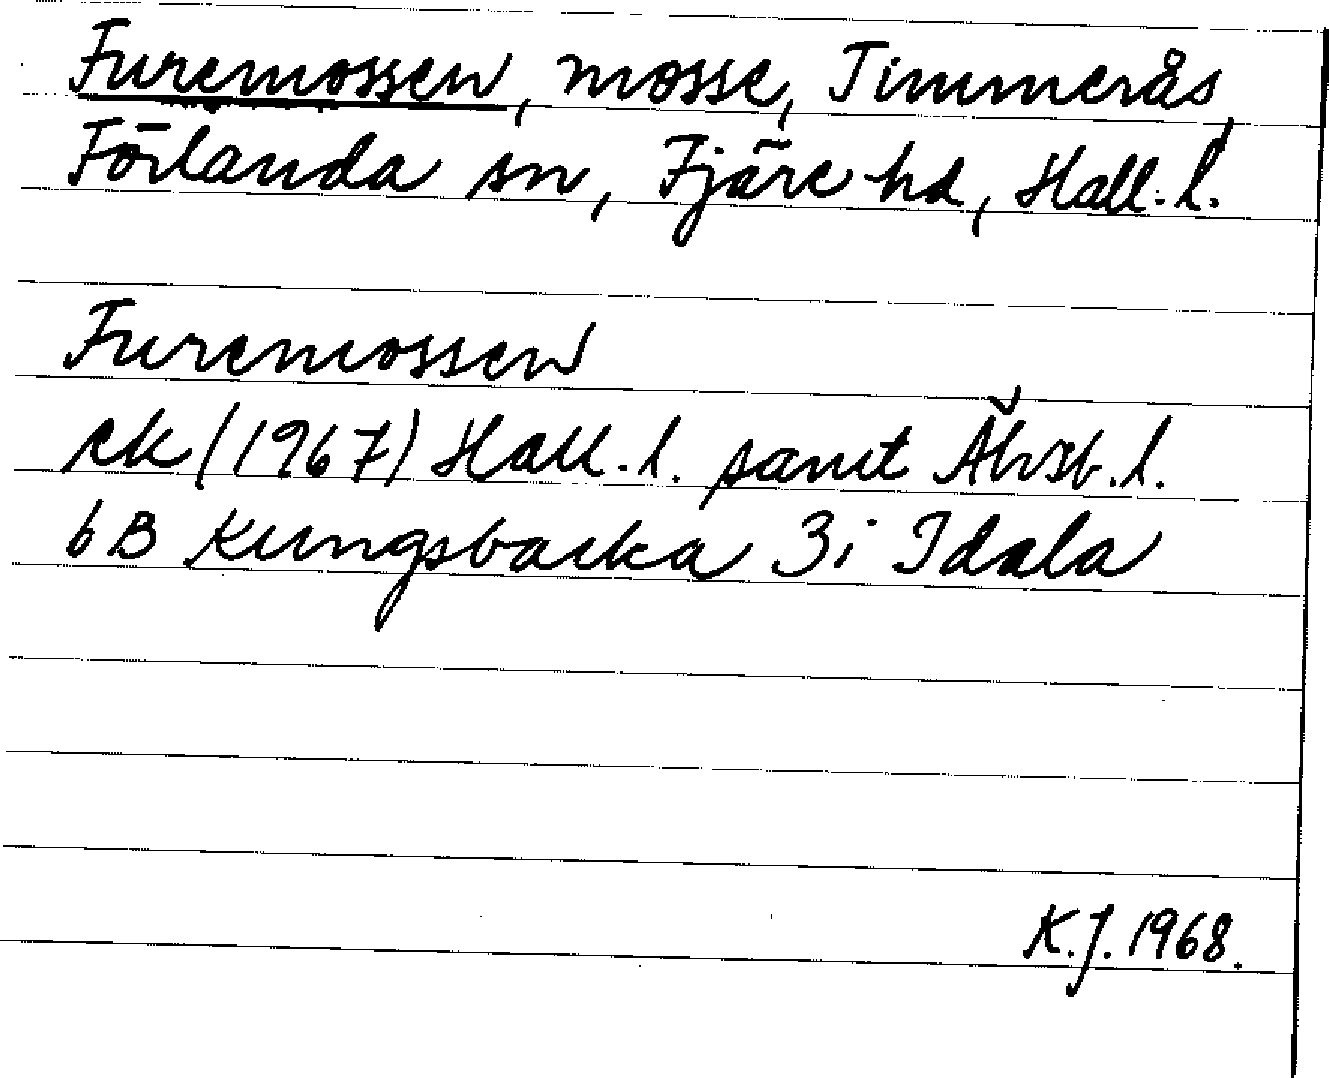 Furemossen, mosse, Timmerås,
Förlanda sn, Fjäre hd, Hall. l.
Furemossen
ek (1967) Hall. l. samt Älvsb. l.
6B Kungsbacka 3i Idala
K.J. 1968.